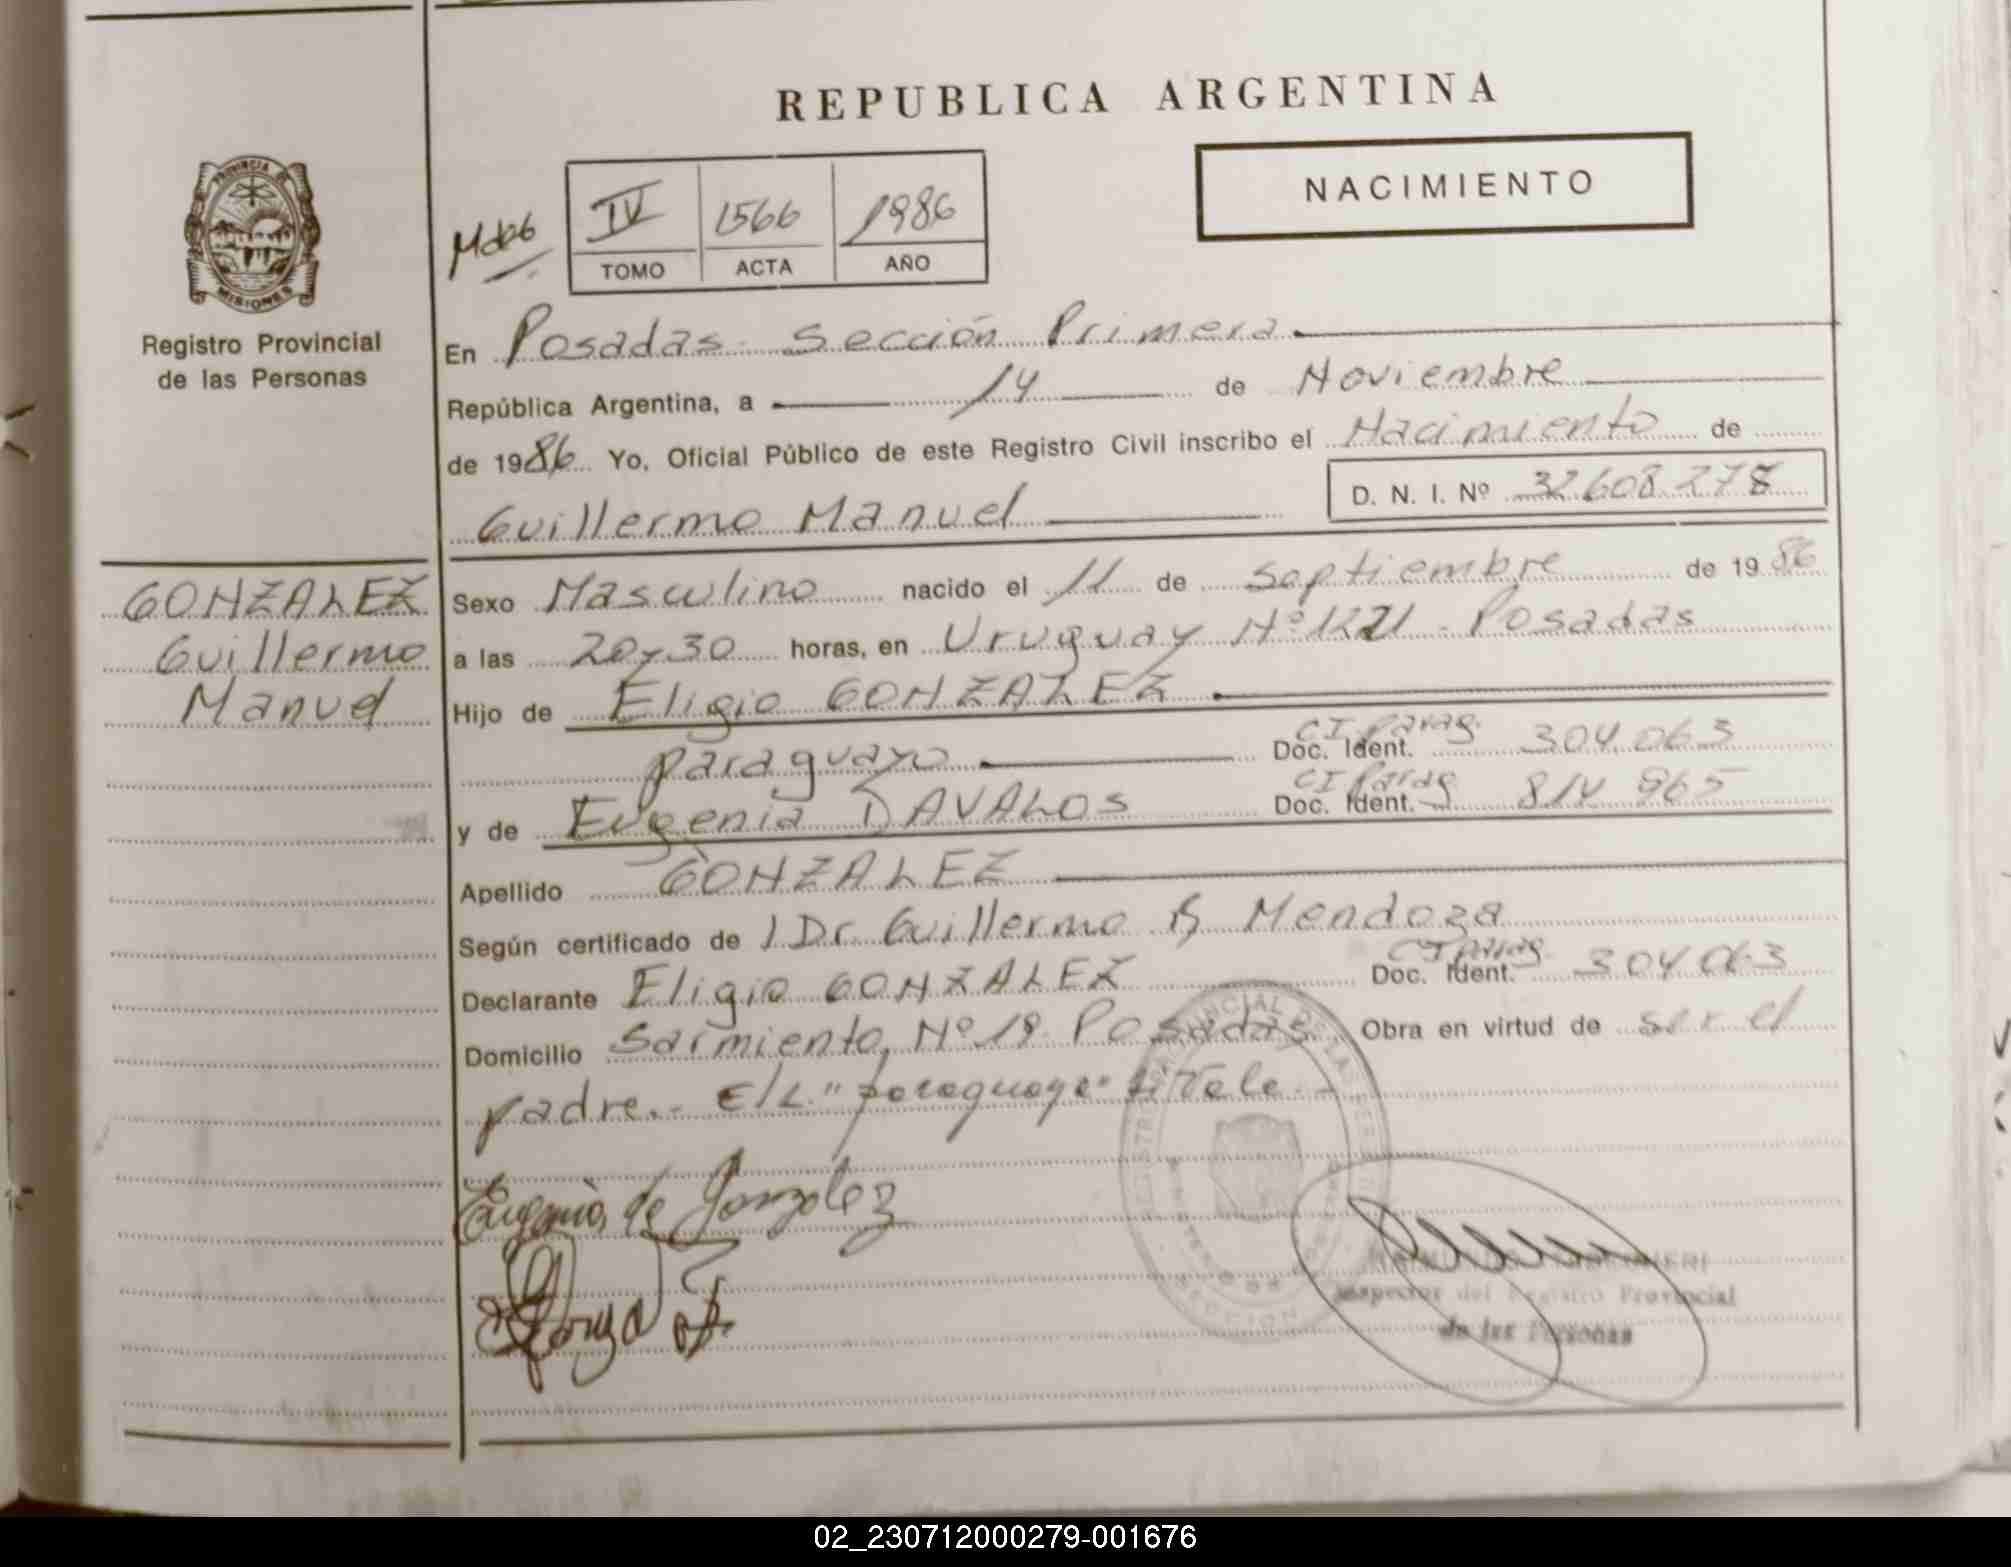 REPUBLICA ARGENTINA
NACIMIENTO
PROVINCIA DE
MISIONES
Registro Provincial
de las Personas
IV 1566 1986
TOMO ACTA AÑO
En Posadas Sección Primera
República Argentina, a 14 de Noviembre
de 1986 Yo, Oficial Público de este Registro Civil inscribo el Nacimiento de
D. N. I. Nº 32608278
Guillermo Manuel
GONZALEZ
Guillermo
Manuel
Sexo Masculino nacido el 11 de Septiembre de 1986
a las 20y30 horas, en Uruguay Nº 1221 - Posadas
Hijo de Eligio GONZALEZ
paraguayo CI Parag. Doc. Ident. 304.063
y de Eugenia DAVALOS CI Parag Doc. Ident. 814 965
Apellido GONZALEZ
Según certificado de Dr Guillermo B Mendoza
Declarante Eligio GONZALEZ CI Parag. Doc. Ident. 304063
Domicilio Sarmiento Nº 18 Posadas Obra en virtud de ser el
padre.- E/L "paraguaya" Vale.-
Eugenia de Gonzalez
Inspector del Registro Provincial
de las Personas
02_230712000279-001676